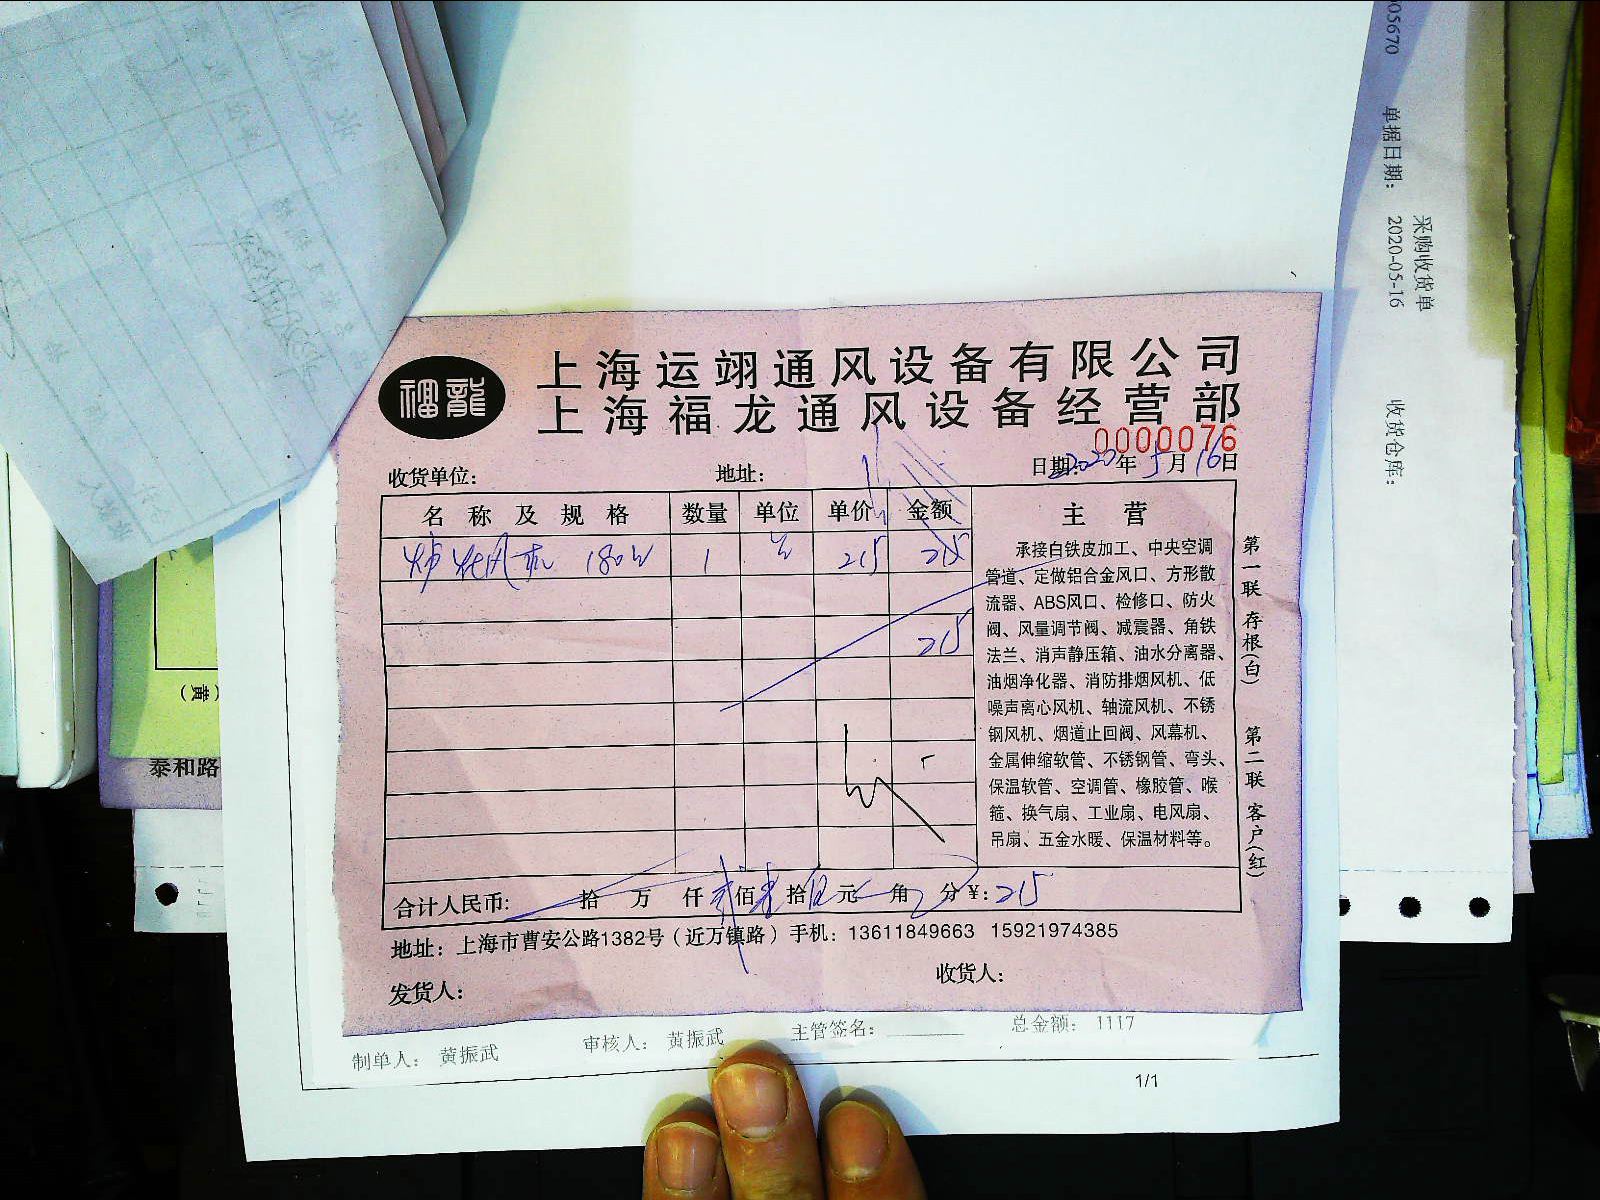 福龍
上海运翊通风设备有限公司
上海福龙通风设备经营部
0000076
收货单位: 地址: 日期: 2020年5月16日
名称及规格 数量 单位 单价 金额 主营
风机 180W 1 台 215 215
215
承接白铁皮加工、中央空调
管道、定做铝合金风口、方形散
流器、ABS风口、检修口、防火
阀、风量调节阀、减震器、角铁
法兰、消声静压箱、油水分离器、
油烟净化器、消防排烟风机、低
噪声离心风机、轴流风机、不锈
钢风机、烟道止回阀、风幕机、
金属伸缩软管、不锈钢管、弯头、
保温软管、空调管、橡胶管、喉
箍、换气扇、工业扇、电风扇、
吊扇、五金水暖、保温材料等。
第一联 存根(白) 第二联 客户(红)
合计人民币: 拾 万 仟 贰佰 壹拾 伍元 角 分 ¥: 215
地址: 上海市曹安公路1382号(近万镇路) 手机: 13611849663 15921974385
发货人: 收货人:
制单人: 黄振武 审核人: 黄振武 主管签名: 总金额: 1117
1/1
采购收货单
05670 单据日期: 2020-05-16 收货仓库:
(黄)
泰和路